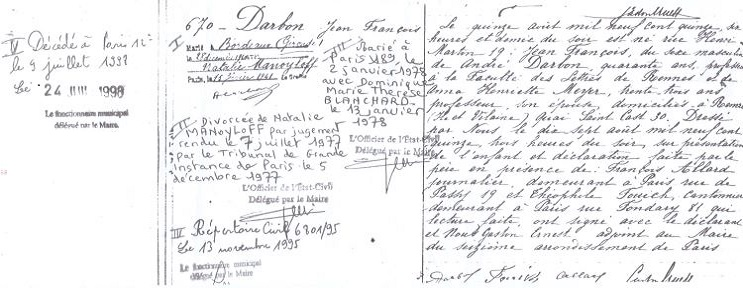 IV Décédé à Paris 12e
le 9 juillet 1998
Le 24 JUIL 1998
Le fonctionnaire municipal
délégué par le Maire.
670 - Darbon Jean François
I
Marié à Bordeaux
le
Natalie Manoyloff
Paris, le
II Divorcée de Natalie
MANOYLOFF par jugement
rendu le 7 juillet 1977
par le Tribunal de Grande
instance de Paris le 5
décembre 1977
L'Officier de l'État-Civil
Délégué par le Maire
III Répertoire Civil 6801/95
Le 13 novembre 1995
Le fonctionnaire municipal
délégué par le Maire
III Marié à
Paris 18e, le
2 janvier 1978
avec Dominique
Marie Thérèse
BLANCHARD
le 13 janvier
1978
L'Officier de l'État-Civil
Délégué par le Maire
Le quinze août mil neuf cent quinze, six
heures et demie du soir est né rue Henri
Martin 19, Jean François, du sexe masculin
de André Darbon, quarante ans, professeur
à la Faculté des Lettres de Rennes et de
Anna Henriette Meyer, trente trois ans,
professeur, son épouse, domiciliés à Rennes
(Ille et Vilaine) quai Saint Cast 30. Dressé
par Nous le dix sept août mil neuf cent
quinze, trois heures du soir, sur présentation
de l'enfant et déclaration faite par le
père en présence de: François
journalier, demeurant à Paris rue de
Passy 19 et Théophile cantonnier
demeurant à Paris rue Fondary qui
lecture faite, ont signé avec le déclarant
et Nous Gaston Ernest adjoint au Maire
du seizième arrondissement de Paris
Darbon